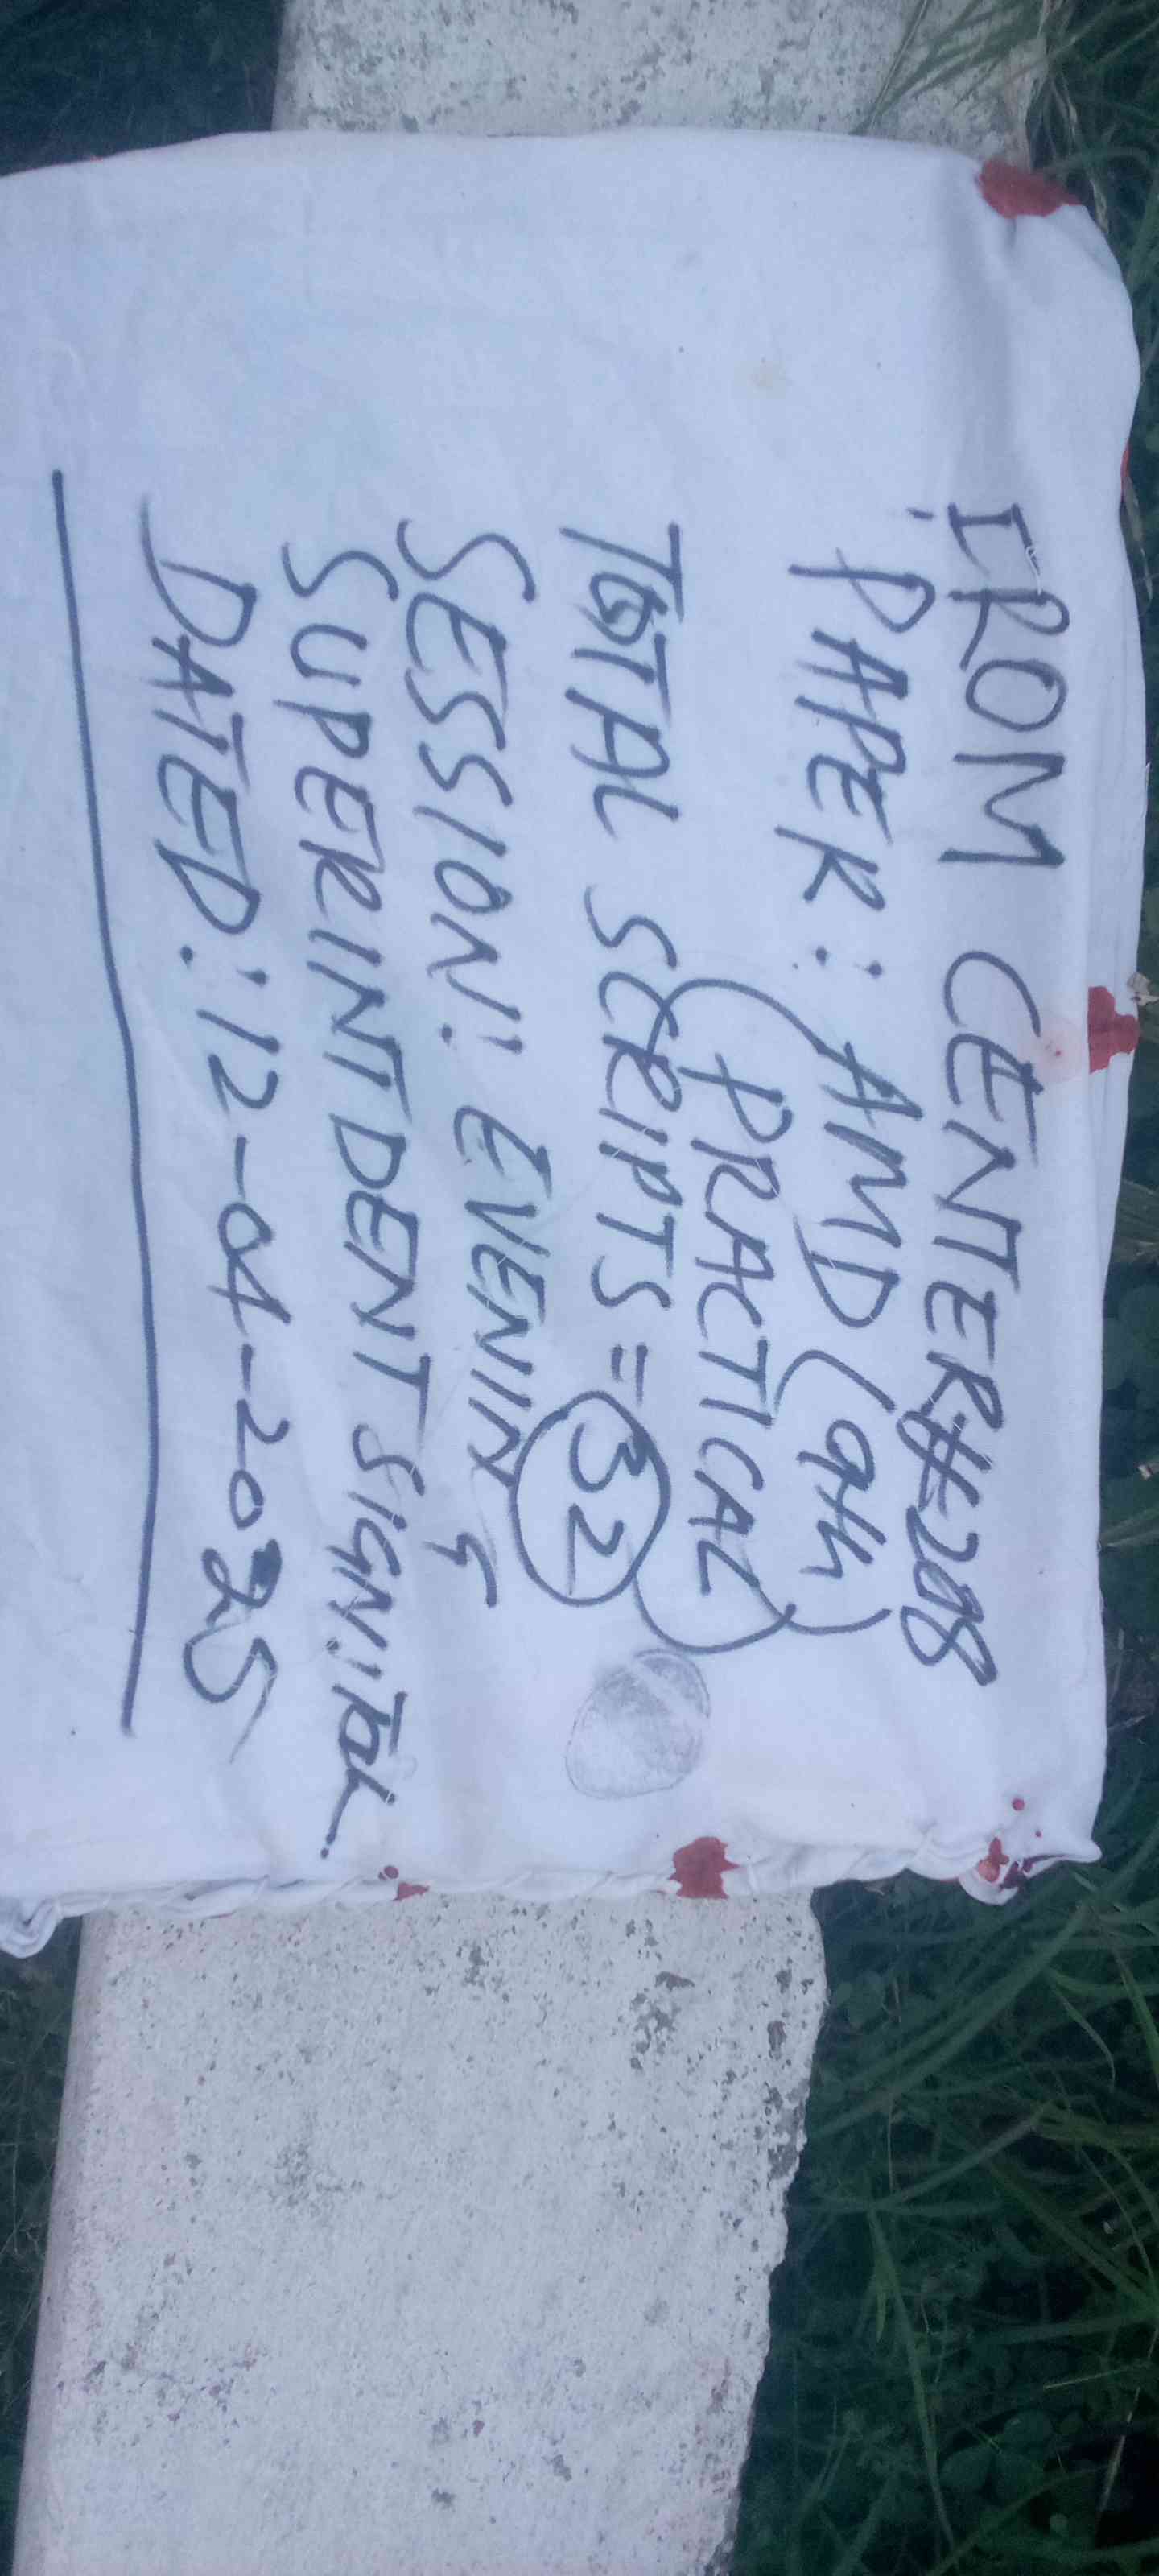 IROM CENTER#298
PAPER: AMD (9th)
(PRACTICAL)
TOTAL SCRIPTS = 32
SESSION: EVENING
SUPERINTDENT SIGN:
DATED: 12-04-2025